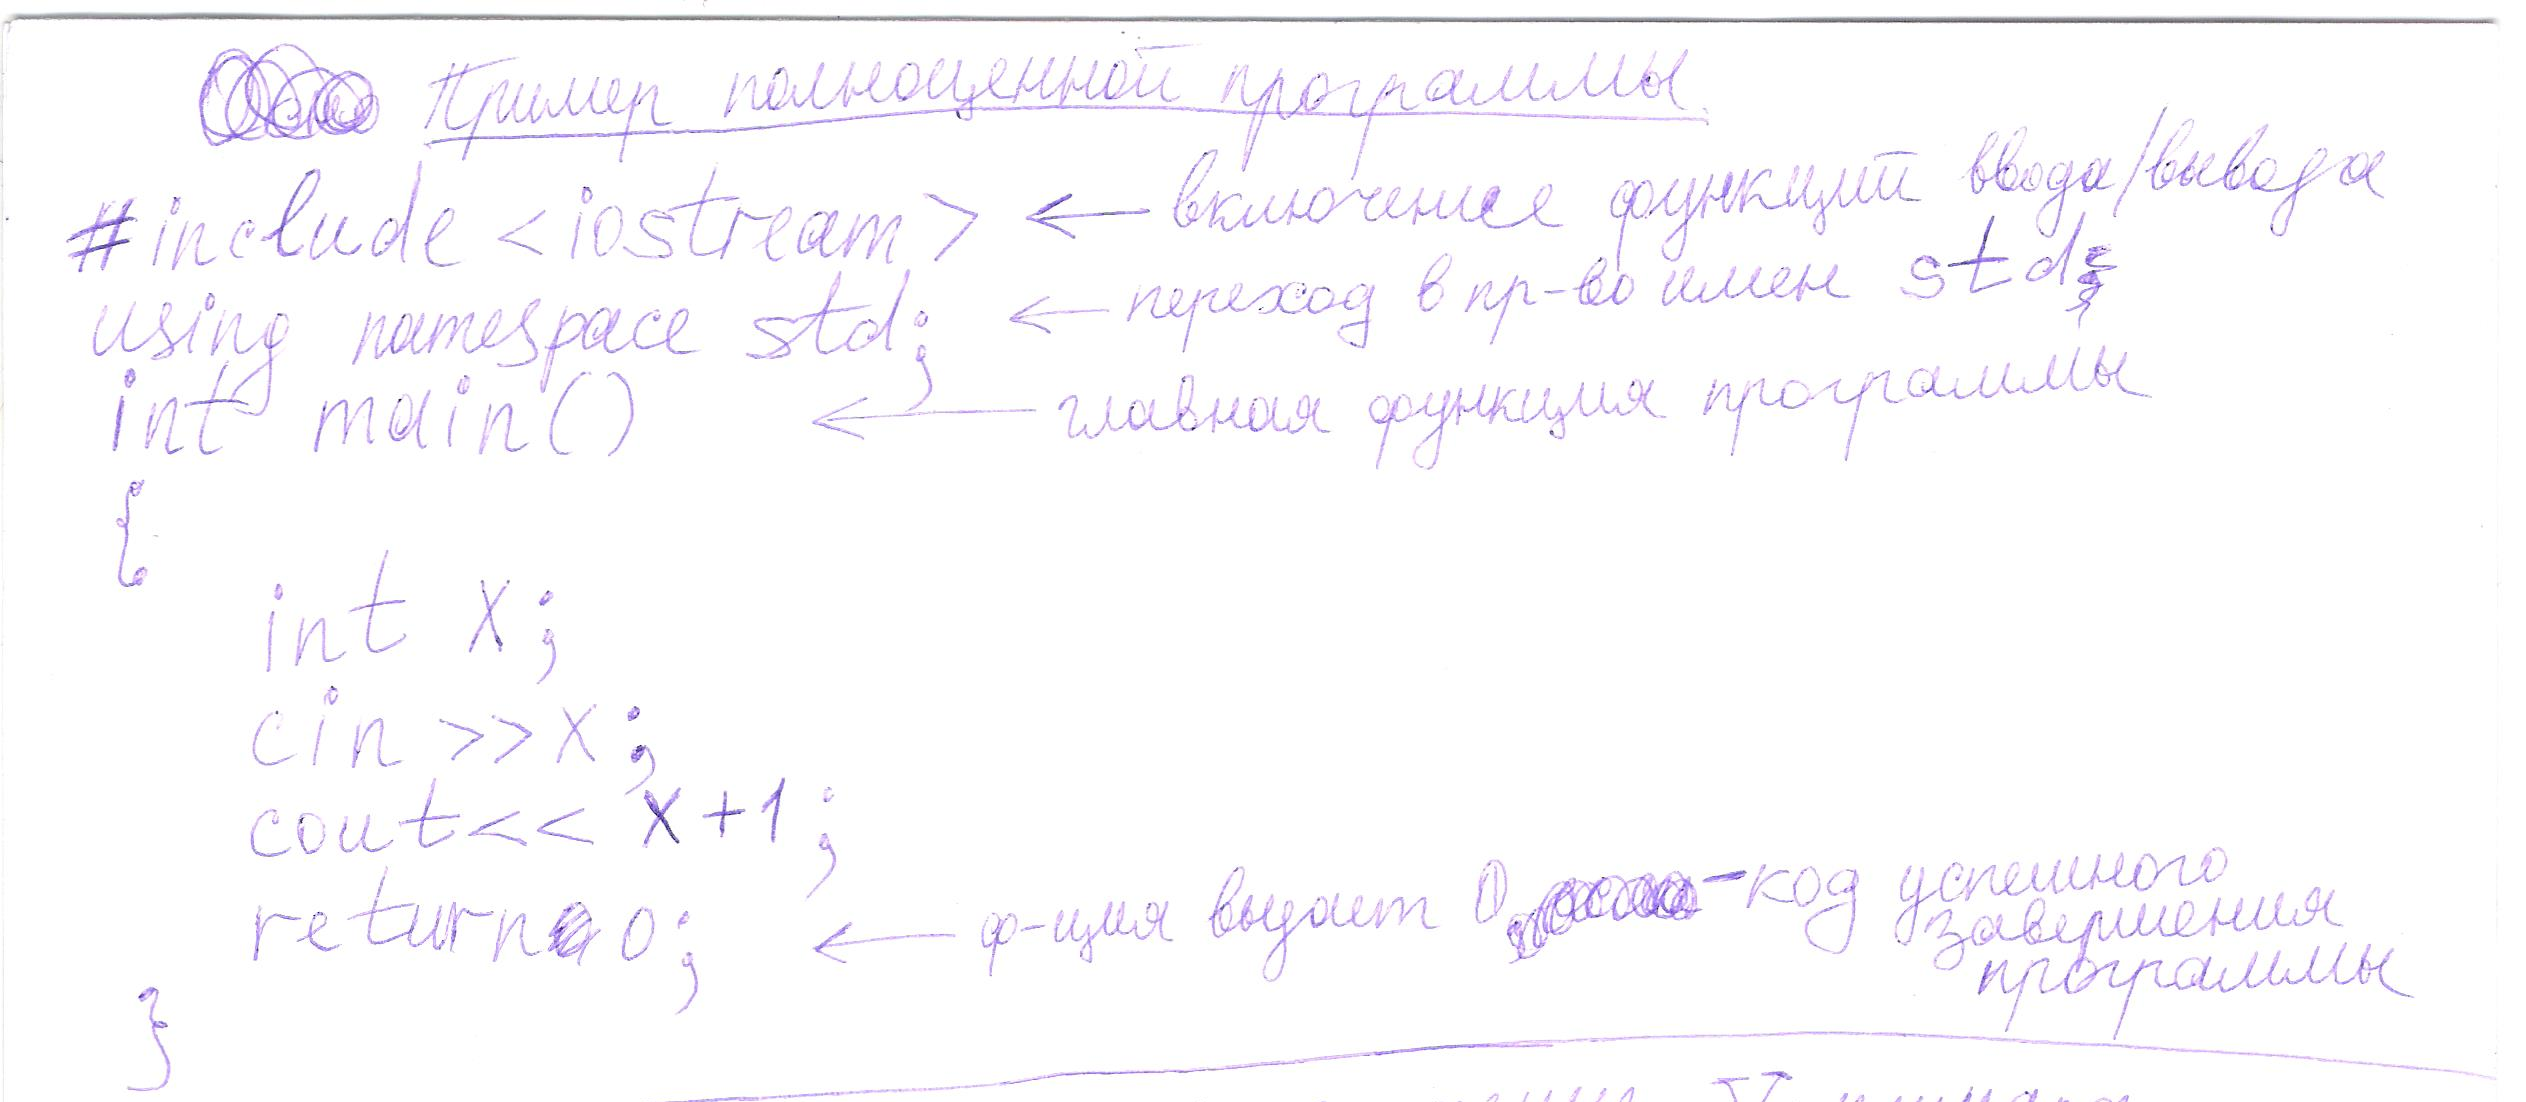 Пример полноценной программы
#include <iostream> ← включение функций ввода/вывода
using namespace std; ← переход в пр-во имен std;
int main() ← главная функция программы
{
int x;
cin >> x;
cout << x+1;
return 0; ← ф-ция выдает 0 - код успешного
завершения
программы
}